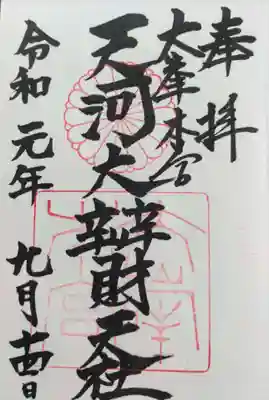 奉拝
大峯本宮
天河大辨財天社
令和元年九月十四日